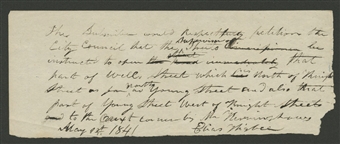 The Subscriber would respectfully petition the
City Council that the Supervisor be
instructed to open that
part of Wells Street which lies North of Knight
Street as far north as Young Street and also that
part of Young Street West of Knight Street
to the corner by Mr
May 1st 1841 Elias Higbee